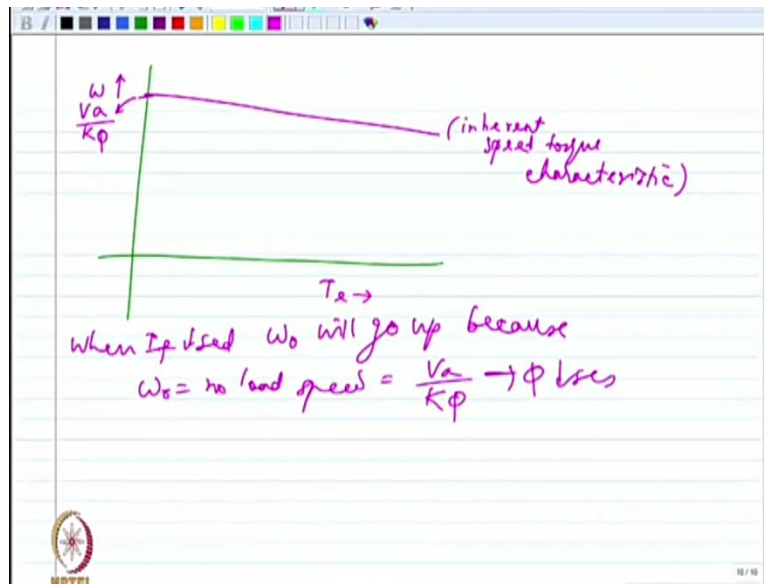 B I
ω ↑
Va
Kφ
(inherent
speed torque
characteristic)
Te →
When If ↓sed ω₀ will go up because
ω₀ = no load speed = Va/Kφ → φ ↓ses
NPTEL
10/10